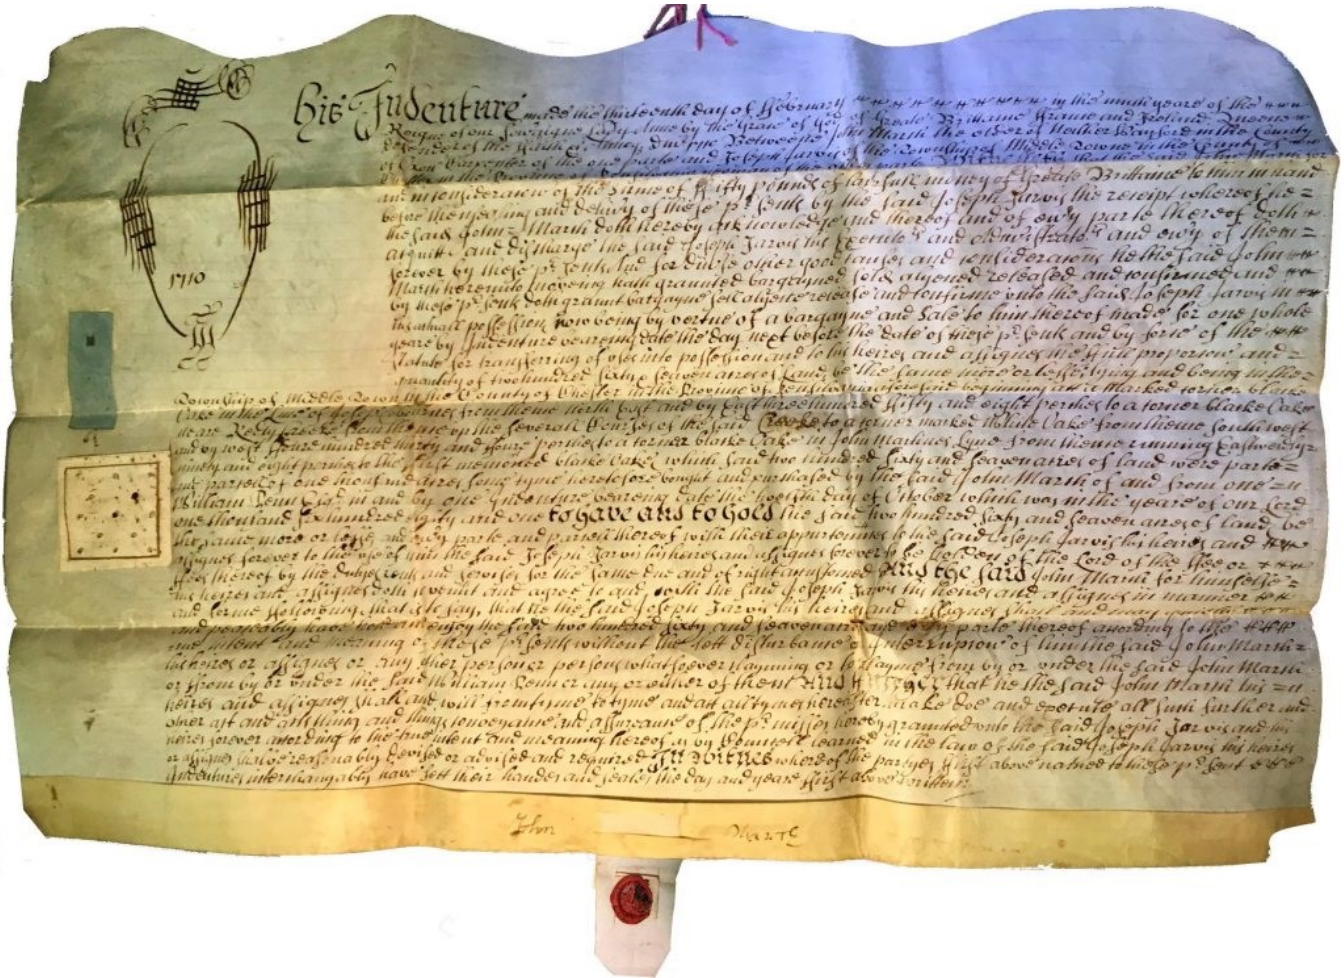 1710
his Indenture made the thirteenth day of ffebruary in the ninth yeare of the
Reigne of our Sovereigne Lady Anne by the Grace of God of Greate Brittaine ffrance and Ireland Queene
defender of the ffaith Betweene John Marsh the elder of in the County
of Carpenter of the one parte and Joseph Jarvis of the Townshipp of Middle Towne in the County of
in the Province of of the other parte that the said John Marsh for
and in consideracon of the summe of ffifty pounds of lawfull money of Greate Brittaine to him in hand
before the ensealing and delivery of these by the said Joseph Jarvis the receipt whereof he
the said John Marsh doth hereby acknowledge and thereof and of every parte thereof doth
acquitt and discharge the said Joseph Jarvis his and and every of them
forever by these And for divers other good causes and consideracons he the said John
Marsh hereunto moveing hath graunted bargayned sold aliened released and confirmed and
by these doth graunt bargayne sell aliene release and confirme unto the said Joseph Jarvis in
his actuall possession now being by vertue of a bargayne and sale to him thereof made for one whole
yeare by Indenture beareing date the day next before the date of these and by force of the
Statute for transferring of uses into possession and to his heires and assignes the ffull proporcon and
quantity of two hundred sixty seaven acres of Land, be the same more or lesse lying and being in the
Township of Middle Town in the County of Chester in the Province of and beginning att a Marked corner blacke
Oake in the Line of Joseph from thence North East and by East three hundred fifty and eight perches to a corner blacke Oake
neare Creeke from thence up the severall of the said Creeke to a corner marked White Oake from thence South west
and by west ffoure hundred and ffoure perches to a corner blacke Oake in John Martines Lyne from thence running Eastwardly
ninety and eight perches to the first mencioned blacke Oake which said two hundred sixty and seaven acres of land were parte
and parcell of one thousand acres some tyme heretofore bought and purchased by the said John Marsh of and from one
William Penn in and by one Indenture beareing date the day of October which was in the yeare of our Lord
one thousand six hundred eighty and one to have and to hold the said two hundred sixty and seaven acres of land be
the same more or lesse and every parte and parcell thereof with their appurtenances to the said Joseph Jarvis his heires and
assignes forever to the use of him the said Joseph Jarvis his heires and assignes forever to be holden of the Lord of the ffee or
ffees thereof by the rents and services for the same due and of right accustomed And the said John Marsh for himselfe
his heires and assignes doth covenant and agree to and with the said Joseph Jarvis his heires and assignes in manner
and forme following that is to say, that he the said Joseph Jarvis his heires and assignes shall and may
and peaceably have hold and enjoy the said two hundred sixty and seaven acres and every parte thereof according to the
true intent and meaning of these without the lett disturbance or interrupcon of him the said John Marsh
his heires or assignes or any other person or persons whatsoever clayming or to clayme from by or under the said John Marsh
or ffrom by or under the said William Penn or any or either of them And further that he the said John Marsh his
heires and assignes shall and will from tyme to tyme and att all tymes hereafter make doe and execute all such further and
other act and acts thing and things conveyance and assurance of the hereby graunted unto the said Joseph Jarvis and his
heires forever according to the true intent and meaning hereof as by Councell learned in the law of the said Joseph Jarvis his heires
or assignes shalbe reasonably devised or advised and required In Witnes whereof the partyes first above named to these
Indentures interchangably have sett their handes and seales the day and yeare ffirst above written
John Marsh